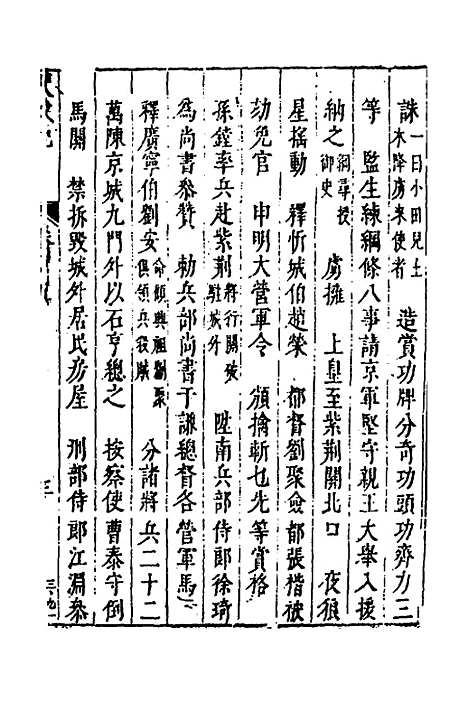 誅一日小田兒土木降虜來使者　造賞功牌分奇功頭功齊力三
等　監生練綱條八事請京軍堅守親王大舉入援
納之綱尋授御史　虜擁　上皇至紫荆關北口　夜狼
星搖動　釋忻城伯趙榮　都督劉聚僉都張楷被
劾免官　申明大營軍令　頒擒斬乜先等賞格
孫鏜率兵赴紫荆將行關破駐城外　陞南兵部侍郎徐琦
爲尚書叅贊　勅兵部尚書于謙總督各營軍馬
釋廣寧伯劉安命頒興祖劉聚俱領兵殺賊　分諸將兵二十二
萬陳京城九門外以石亨總之　按察使曹泰守倒
馬關　禁拆毀城外居民房屋　刑部侍郎江淵叅